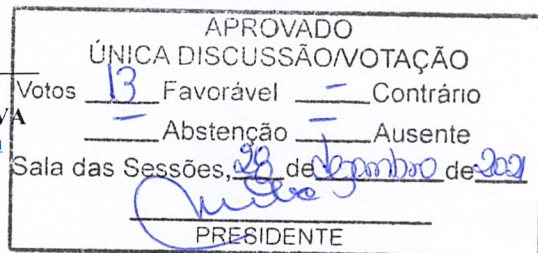 APROVADO
ÚNICA DISCUSSÃO/VOTAÇÃO
Votos 13 Favorável - Contrário
VA
- Abstenção - Ausente
Sala das Sessões, de dezembro de 2021
PRESIDENTE